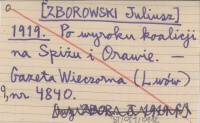 [ZBOROWSKI Juliusz]
1919. Po wyroku koalicji
na Spiżu i Orawie. —
Gazeta Wieczorna (Lwów)
9, nr 4840.